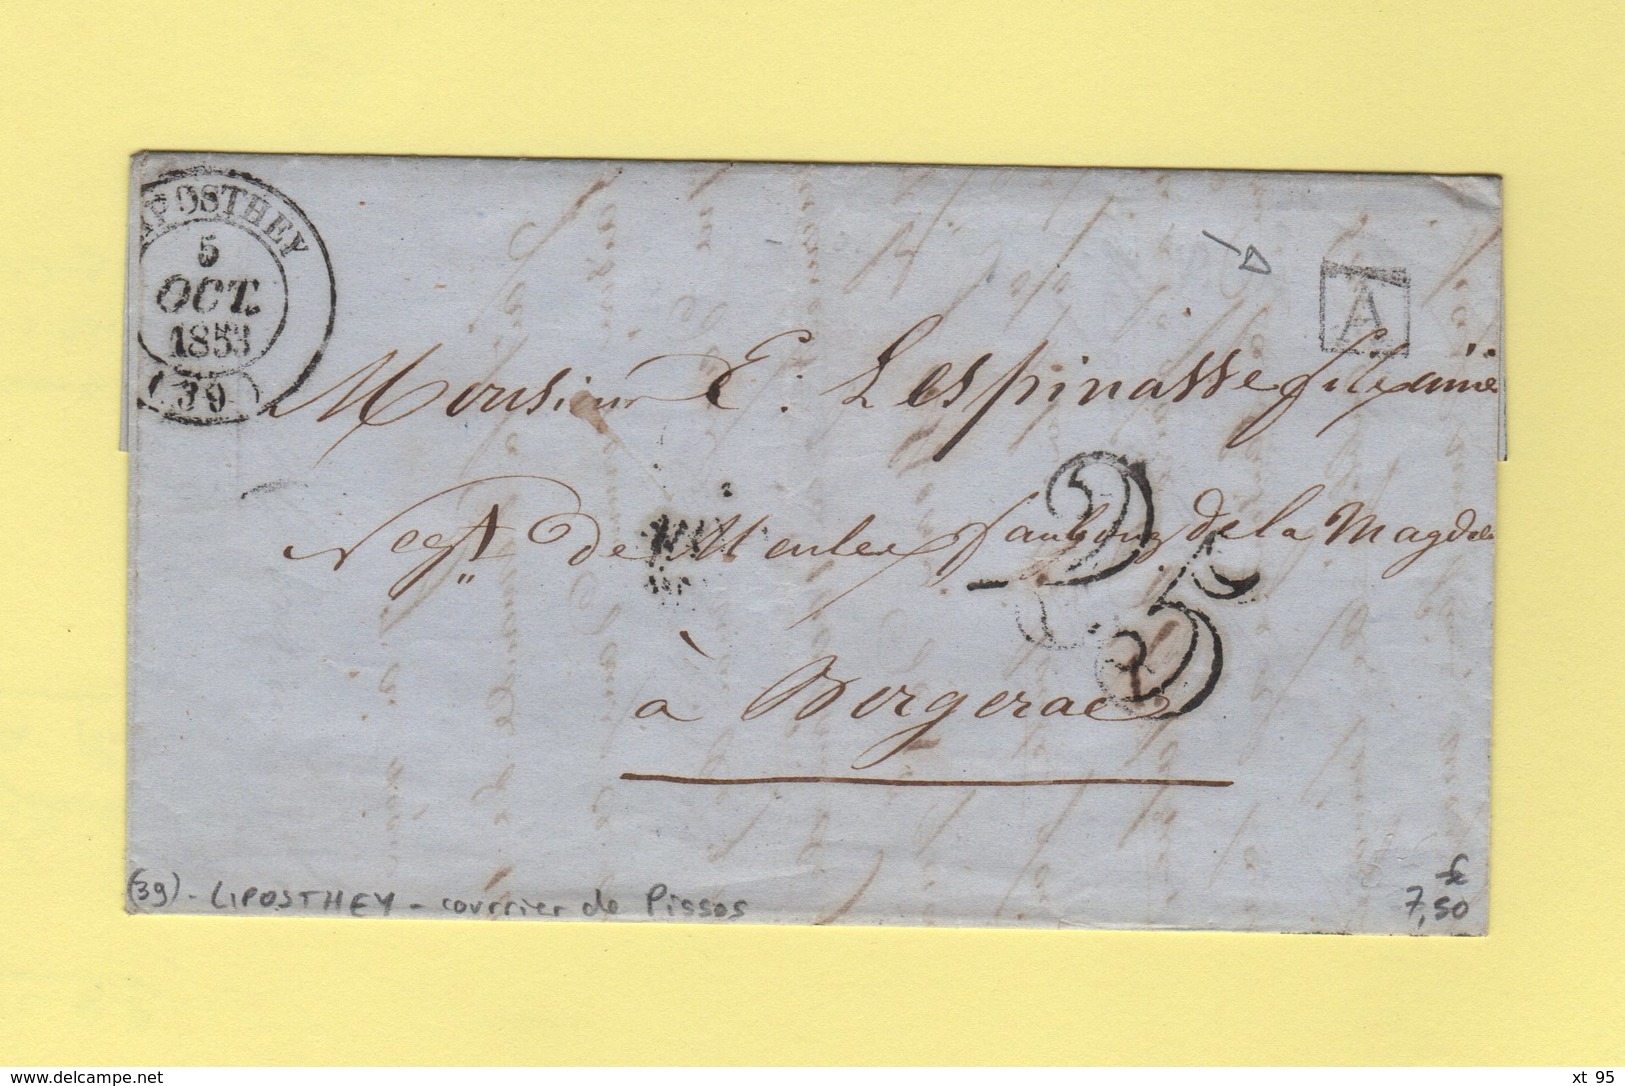 IPOSTHEY
5
OCT.
1853
(39)
A
Monsieur E. Lespinasse fils ainé
Negt de Meules faubourg de la Magdele
25c
à Bergerac
(39) - LIPOSTHEY - courrier de Pissos
7,50
delcampe.net
xt 95